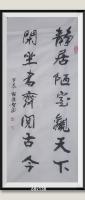 静居陋室觀天下
閑坐書齋閱古今